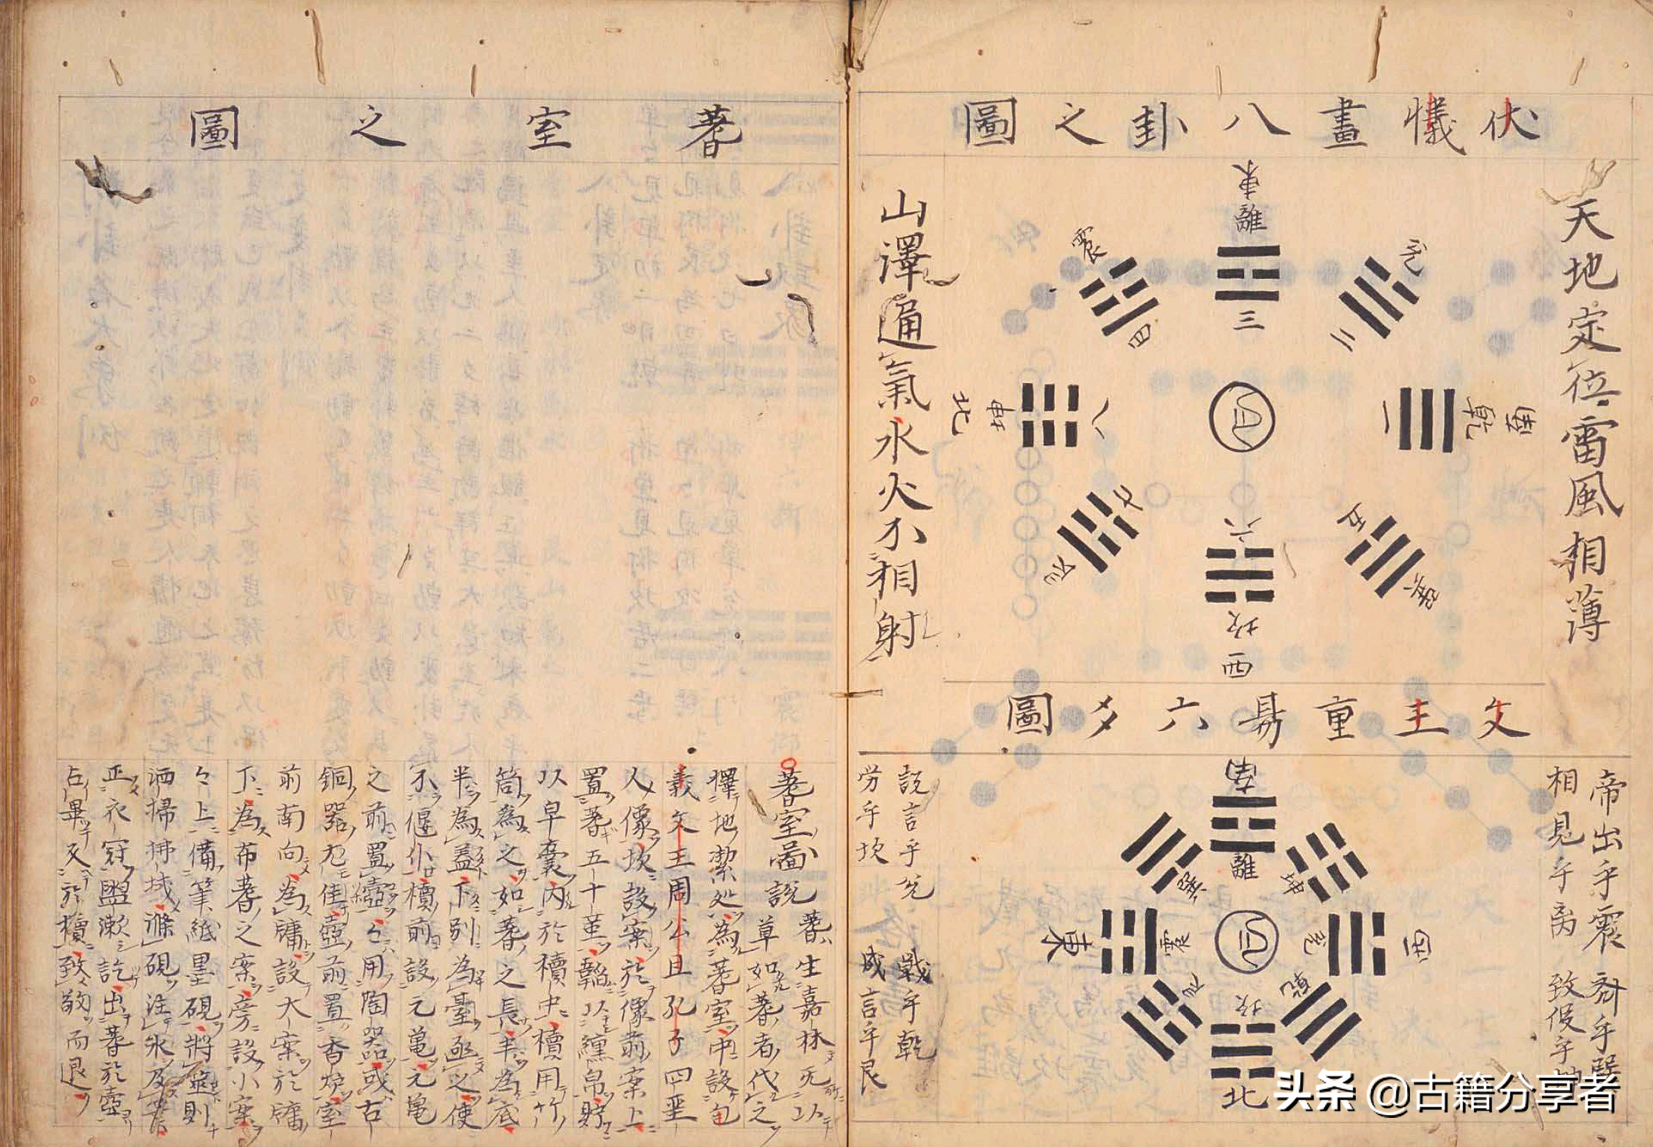 伏犠畫八卦之圖
天地定位雷風相薄
山澤通氣水火不相射
東
離
三
震
四
兌
二
北
坤
八
一
乾
西
七
艮
五
巽
六
坎
西
文王重易六爻圖
帝出乎震
相見乎离 致役乎坤
說言乎兌 戰乎乾
労乎坎 成言乎艮
南
離
巽
坤
東
震
兌
西
艮
坎
乾
北
蓍室之圖
蓍室圖說 蓍生嘉林
草如蓍者代之
擇地潔処為蓍室中設
羲文王周公且孔子四聖
人像坎設案於像前案上
置蓍五十莖韜以纁帛貯
以皁囊內於櫝中櫝用竹
筒為之如蓍之長半為底
半為蓋下別為臺函之使
不偃仆櫝前設元亀元亀
之前置壺々用陶器或古
銅器尤佳壺前置香炉室
前南向為牖設大案於牖
下為布蓍之案旁設小案
々上備筆紙墨硯將筮則
洒掃拂拭滌硯注水及
正衣冠盥漱訖出蓍於壺
占畢反於櫝致敬而退
头条 @古籍分享者